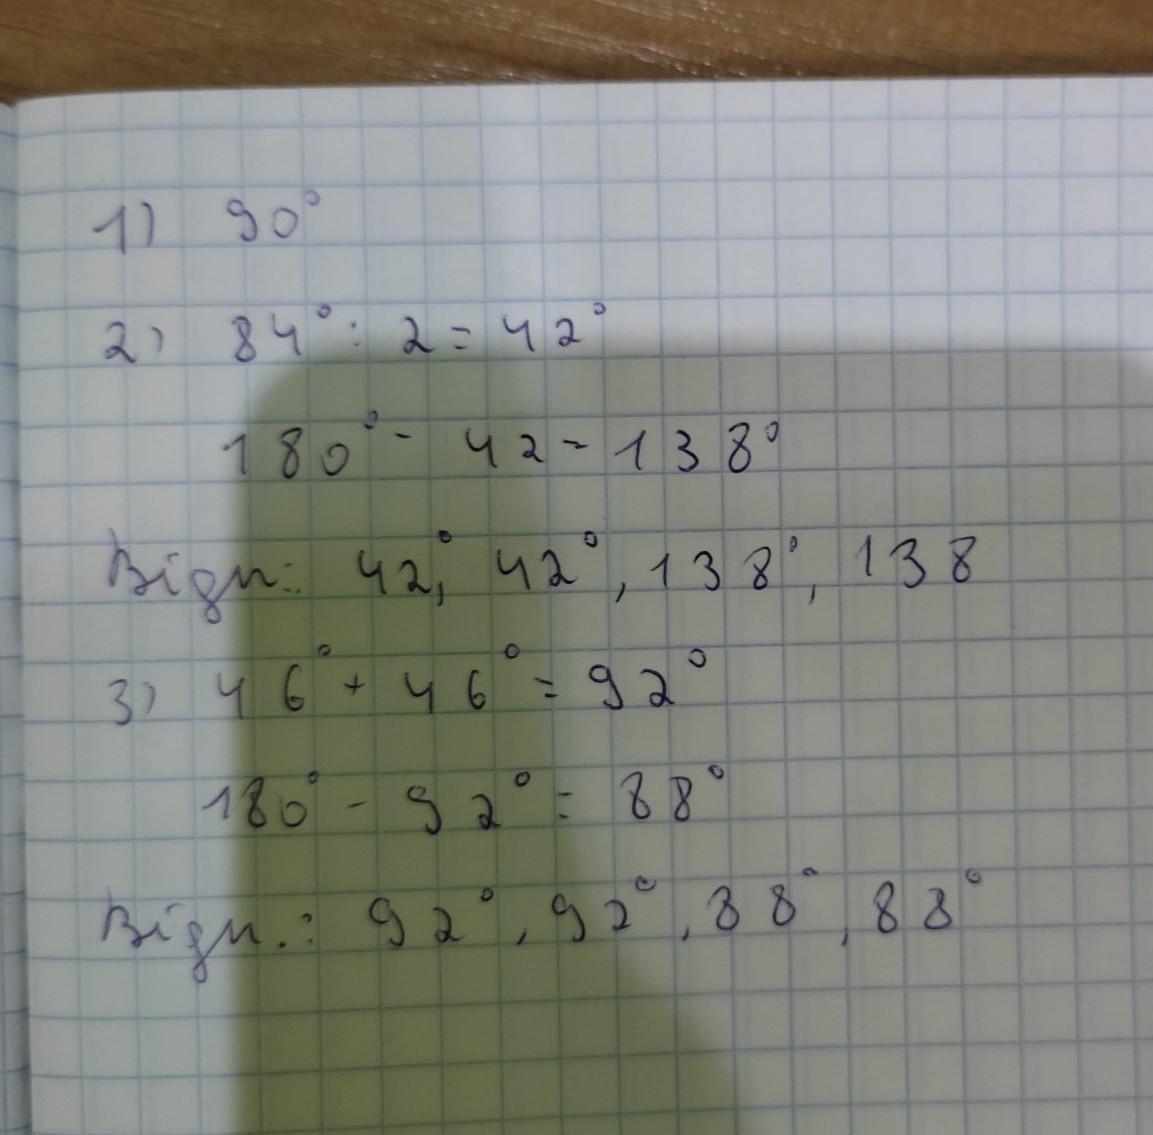 1) 90°
2) 84° : 2 = 42°
180° - 42 = 138°
Відп: 42°, 42°, 138°, 138
3) 46° + 46° = 92°
180° - 92° = 88°
Відп.: 92°, 92°, 88°, 88°